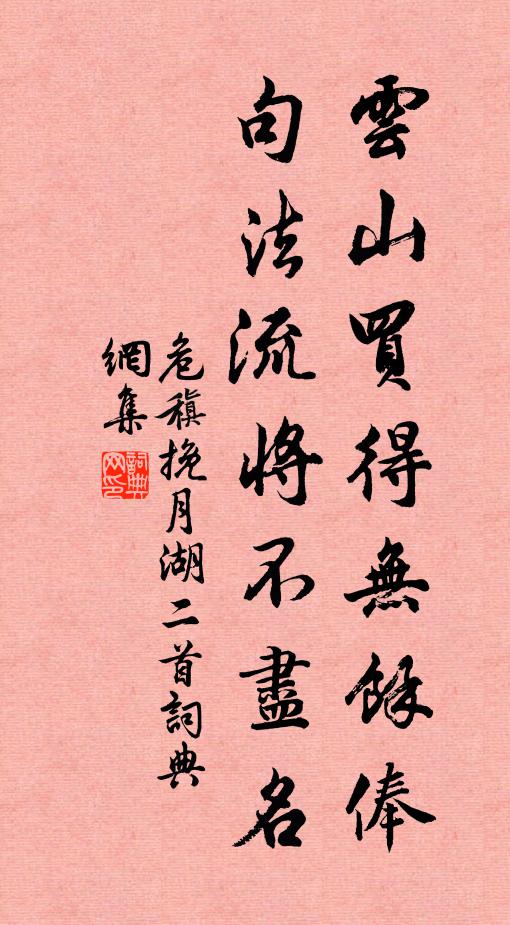 雲山買得無餘俸
句法流將不盡名
危稹挽月湖二首詞典
網集
詞典網印